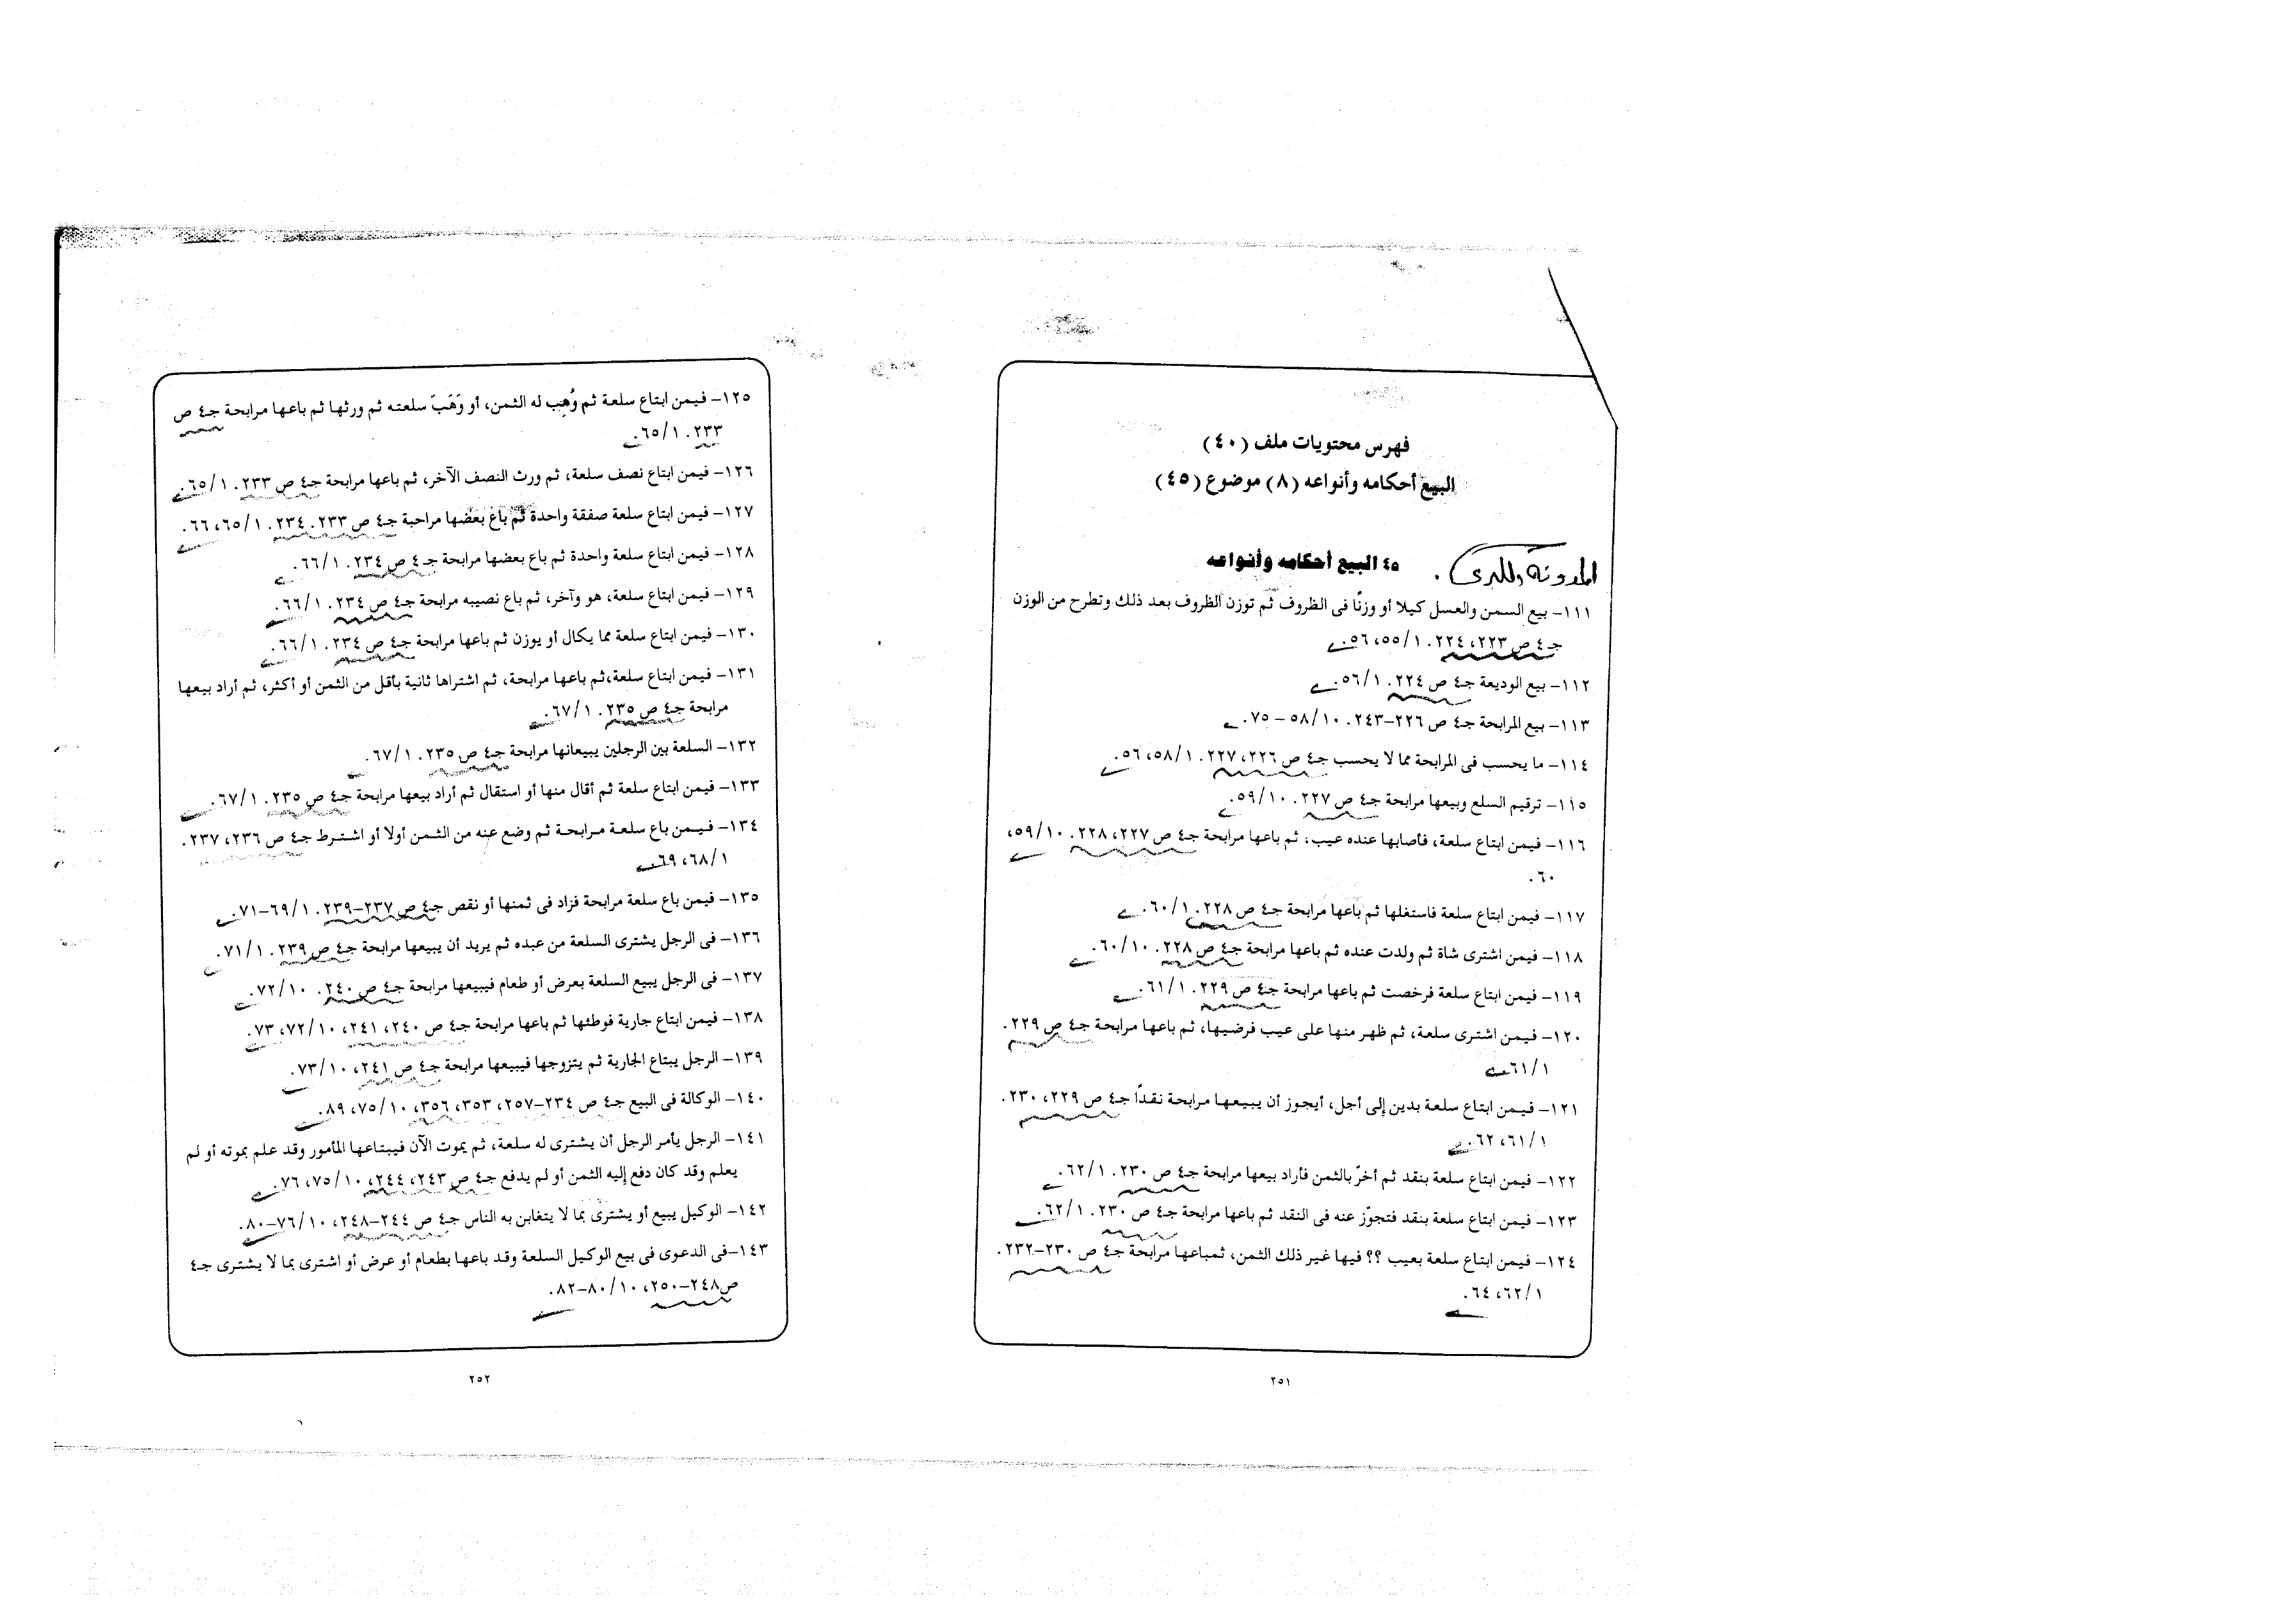 فهرس محتويات ملف (٤٠)
البيع أحكامه وأنواعه (٨) موضوع (٤٥)
المدونة الكبرى .
٤٥ البيع أحكامه وأنواعه
١١١– بيع السمن والعسل كيلا أو وزنًا فى الظروف ثم توزن الظروف بعد ذلك وتطرح من الوزن
جـ٤ ص ٢٢٣، ٢٢٤. ١/ ٥٥، ٥٦.
١١٢– بيع الوديعة جـ٤ ص ٢٢٤. ١/ ٥٦.
١١٣– بيع المرابحة جـ٤ ص ٢٢٦–٢٤٣. ١٠/ ٥٨ – ٧٥.
١١٤– ما يحسب فى المرابحة مما لا يحسب جـ٤ ص ٢٢٦، ٢٢٧. ١/ ٥٨، ٥٦.
١١٥– ترقيم السلع وبيعها مرابحة جـ٤ ص ٢٢٧. ١٠/ ٥٩.
١١٦– فيمن ابتاع سلعة، فأصابها عنده عيب، ثم باعها مرابحة جـ٤ ص ٢٢٧، ٢٢٨. ١٠/ ٥٩،
٦٠.
١١٧– فيمن ابتاع سلعة فاستغلها ثم باعها مرابحة جـ٤ ص ٢٢٨. ١/ ٦٠.
١١٨– فيمن اشترى شاة ثم ولدت عنده ثم باعها مرابحة جـ٤ ص ٢٢٨. ١٠/ ٦٠.
١١٩– فيمن ابتاع سلعة فرخصت ثم باعها مرابحة جـ٤ ص ٢٢٩. ١/ ٦١.
١٢٠– فيمن اشترى سلعة، ثم ظهر منها على عيب فرضيها، ثم باعها مرابحة جـ٤ ص ٢٢٩.
١/ ٦١.
١٢١– فيمن ابتاع سلعة بدين إلى أجل، أيجوز أن يبيعها مرابحة نقداً جـ٤ ص ٢٢٩، ٢٣٠.
١/ ٦١، ٦٢.
١٢٢– فيمن ابتاع سلعة بنقد ثم أخرّ بالثمن فأراد بيعها مرابحة جـ٤ ص ٢٣٠. ١/ ٦٢.
١٢٣– فيمن ابتاع سلعة بنقد فتجوّز عنه فى النقد ثم باعها مرابحة جـ٤ ص ٢٣٠. ١/ ٦٢.
١٢٤– فيمن ابتاع سلعة بعيب ؟؟ فيها غير ذلك الثمن، ثمباعها مرابحة جـ٤ ص ٢٣٠–٢٣٢.
١/ ٦٢، ٦٤.
٢٥١
١٢٥– فيمن ابتاع سلعة ثم وُهِب له الثمن، أو وَهَبَ سلعته ثم ورثها ثم باعها مرابحة جـ٤ ص
٢٣٣. ١/ ٦٥.
١٢٦– فيمن ابتاع نصف سلعة، ثم ورث النصف الآخر، ثم باعها مرابحة جـ٤ ص ٢٣٣. ١/ ٦٥.
١٢٧– فيمن ابتاع سلعة صفقة واحدة ثم باع بعضها مراحبة جـ٤ ص ٢٣٣. ٢٣٤. ١/ ٦٥، ٦٦.
١٢٨– فيمن ابتاع سلعة واحدة ثم باع بعضها مرابحة جـ٤ ص ٢٣٤. ١/ ٦٦.
١٢٩– فيمن ابتاع سلعة، هو وآخر، ثم باع نصيبه مرابحة جـ٤ ص ٢٣٤. ١/ ٦٦.
١٣٠– فيمن ابتاع سلعة مما يكال أو يوزن ثم باعها مرابحة جـ٤ ص ٢٣٤. ١/ ٦٦.
١٣١– فيمن ابتاع سلعة،ثم باعها مرابحة، ثم اشتراها ثانية بأقل من الثمن أو أكثر، ثم أراد بيعها
مرابحة جـ٤ ص ٢٣٥. ١/ ٦٧.
١٣٢– السلعة بين الرجلين يبيعانها مرابحة جـ٤ ص ٢٣٥. ١/ ٦٧.
١٣٣– فيمن ابتاع سلعة ثم أقال منها أو استقال ثم أراد بيعها مرابحة جـ٤ ص ٢٣٥. ١/ ٦٧.
١٣٤– فيمن باع سلعة مرابحة ثم وضع عنه من الثمن أولا أو اشترط جـ٤ ص ٢٣٦، ٢٣٧.
١/ ٦٨، ٦٩.
١٣٥– فيمن باع سلعة مرابحة فزاد فى ثمنها أو نقص جـ٤ ص ٢٣٧–٢٣٩. ١/ ٦٩–٧١.
١٣٦– فى الرجل يشترى السلعة من عبده ثم يريد أن يبيعها مرابحة جـ٤ ص ٢٣٩. ١/ ٧١.
١٣٧– فى الرجل يبيع السلعة بعرض أو طعام فيبيعها مرابحة جـ٤ ص ٢٤٠. ١٠/ ٧٢.
١٣٨– فيمن ابتاع جارية فوطئها ثم باعها مرابحة جـ٤ ص ٢٤٠، ٢٤١، ١٠/ ٧٢، ٧٣.
١٣٩– الرجل يبتاع الجارية ثم يتزوجها فيبيعها مرابحة جـ٤ ص ٢٤١، ١٠/ ٧٣.
١٤٠– الوكالة فى البيع جـ٤ ص ٢٣٤–٢٥٧، ٣٥٣، ٣٥٦، ١٠/ ٧٥، ٨٩.
١٤١– الرجل يأمر الرجل أن يشترى له سلعة، ثم يموت الآن فيبتاعها المأمور وقد علم بموته أو لم
يعلم وقد كان دفع إليه الثمن أو لم يدفع جـ٤ ص ٢٤٣، ٢٤٤، ١٠/ ٧٥، ٧٦.
١٤٢– الوكيل يبيع أو يشترى بما لا يتغابن به الناس جـ٤ ص ٢٤٤–٢٤٨، ١٠/ ٧٦–٨٠.
١٤٣–فى الدعوى فى بيع الوكيل السلعة وقد باعها بطعام أو عرض أو اشترى بما لا يشترى جـ٤
ص٢٤٨–٢٥٠، ١٠/ ٨٠–٨٢.
٢٥٢